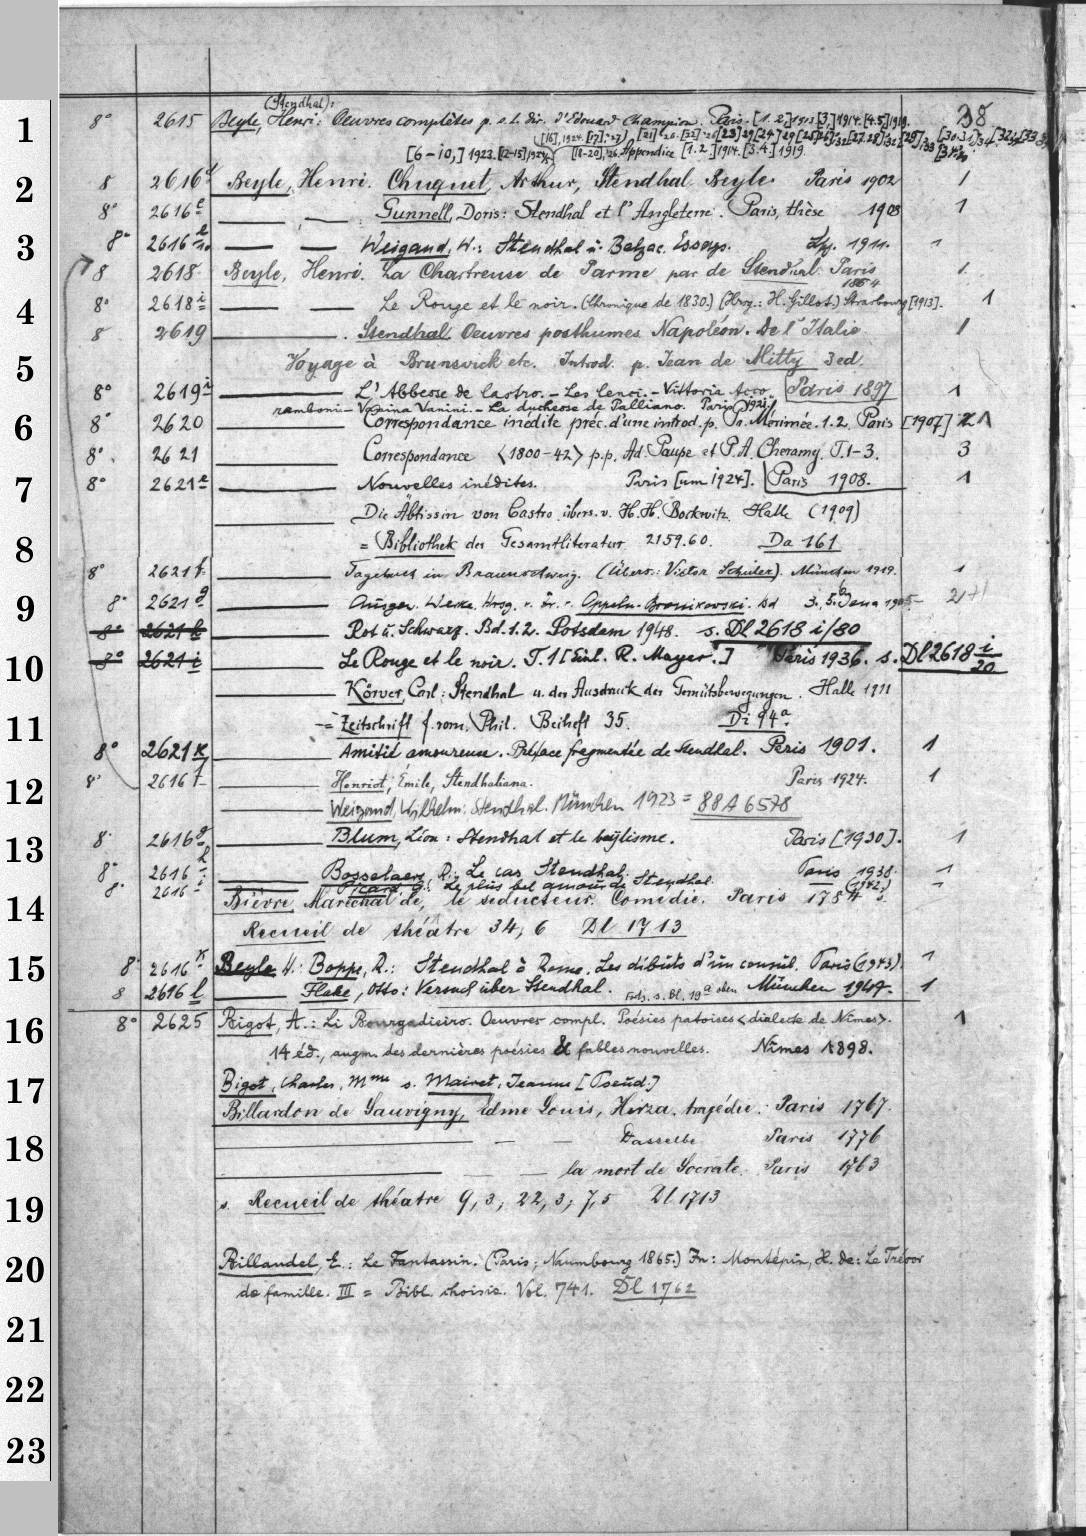 (Stendhal):
1 8° 2615 Beyle, Henri: Oeuvres complètes p. s. l. dir. d'Edouard Champion. Paris. [1.2.] 1913 [3.] 1914. [4.5] 1919. 38
[16], 1924. [17] [21] 26. [22] [23] 29 [24] 29
[6-10,] 1923. [18-20], 26. Appendice [1.2.] 1914. [3.4.] 1919.
2 8 2616 d Beyle, Henri. Chuquet, Arthur, Stendhal-Beyle. Paris 1902 1
8° 2616 e Gunnell, Doris: Stendhal et l'Angleterre. Paris, thèse 1908 1
3 8° 2616 Weigand, W.: Stendhal u. Balzac. Essays. Lpz. 1911. 1
8 2618 Beyle, Henri. La Chartreuse de Parme par de Stendhal. Paris 1
1854
4 8° 2618 i Le Rouge et le noir. (Chronique de 1830.) (Hrsg.: H. Gillot.) Strasbourg [1913]. 1
8 2619 . Stendhal. Oeuvres posthumes. Napoléon. De l'Italie. 1
5 Voyage à Brunsvick etc. Introd. p. Jean de Mitty 3 ed.
8° 2619 i L'Abbesse de Castro. - Les Cenci. - Vittoria Acco Paris 1897 1
ramboni - Vanina Vanini. - La duchesse de Palliano. Paris 1921
6 8° 2620 Correspondance inédite préc. d'une introd. p. Pr. Mérimée. 1.2. Paris [1907] 1
8° 2621 Correspondance <1800-42> p.p. Ad. Paupe et P. A. Cheramy. T. 1-3. 3
7 8° 2621 e Nouvelles inédites. Paris [um 1924]. Paris 1908. 1
Die Äbtissin von Castro übers. v. H. H. Bockwitz. Halle (1909)
8 = Bibliothek der Gesamtliteratur 2159.60. Da 161
8° 2621 f Tagebuch in Braunschweig. (Übers.: Victor Schuler). München 1919. 1
9 8° 2621 g Ausgew. Werke. Hrsg. v. Fr. v. Oppeln-Bronikowski. Bd 3. 5. Jena 2+1
8° 2621 h Rot u. Schwarz. Bd. 1.2. Potsdam 1948. s. Dl 2618 i/80
10 8° 2621 i Le Rouge et le noir. T. 1 [Einl. R. Mayer.] Paris 1936. s. Dl 2618 i/20
Körver, Carl: Stendhal u. der Ausdruck der Gemütsbewegungen. Halle 1911
11 = Zeitschrift f. rom. Phil. Beiheft 35. Di 94 a
8° 2621 k Amitié amoureuse. Préface fragmentée de Stendhal. Paris 1901. 1
12 8° 2616 f Henriot, Émile, Stendhaliana. Paris 1924. 1
Weigand, Wilhelm: Stendhal. München 1923 = 88 A 6578
13 8° 2616 g Blum, Léon: Stendhal et le beylisme. Paris [1930]. 1
8° 2616 h Bosselaers, R.: Le cas Stendhal. Paris 1938. 1
8° 2616 i Picard, G.: Le plus bel amour de Stendhal. (1942)
14 Bièvre, Maréchal de, le séducteur. Comédie. Paris 1784 s.
Recueil de théâtre 34, 6 Dl 1713
15 8° 2616 k Beyle H.: Boppe, R.: Stendhal à Rome. Les débuts d'un consul. Paris (1943). 1
8 2616 l Flake, Otto: Versuch über Stendhal. Forts. s. Bl. 19 a oben München 1947. 1
16 8° 2625 Bigot, A.: Li Bourgadieiro. Oeuvres compl. Poésies patoises <dialecte de Nîmes>. 1
14 éd., augm. des dernières poésies & fables nouvelles. Nîmes 1898.
17 Bigot, Charles, Mme s. Mairet, Jeanne [Pseud.]
Billardon de Sauvigny, Edme Louis, Hirza. tragédie. Paris 1767.
18 Dasselbe Paris 1776
la mort de Socrate. Paris 1763
19 s. Recueil de théatre 9, 3; 22, 3; 7, 5 Dl 1713
20 Billaudel, E.: Le Fantassin. (Paris; Naumbourg 1865.) In: Montépin, X. de: Le Trésor
de famille. III = Bibl. choisie. Vol. 741. Dl 1762
21
22
23